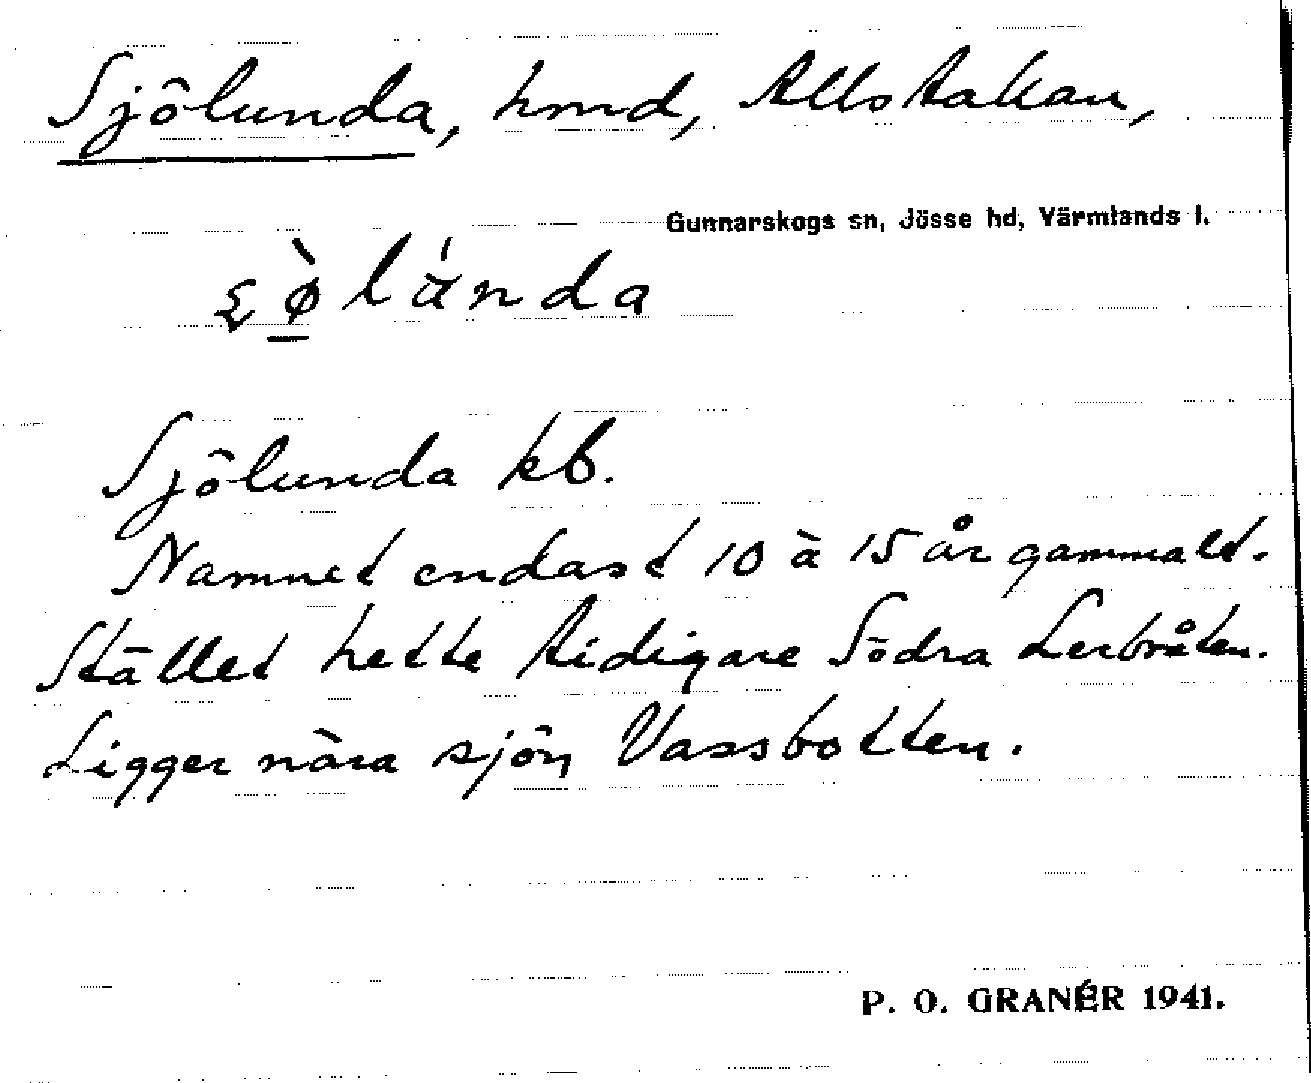 Sjölunda, hmd, Allstakan,
Gunnarskogs sn, Jösse hd, Värmlands l.
Sjölunda kb.
Namnet endast 10 à 15 år gammalt.
Stället hette tidigare Södra Lerbråten.
Ligger nära sjön Vassbotten.
P. O. GRANÉR 1941.